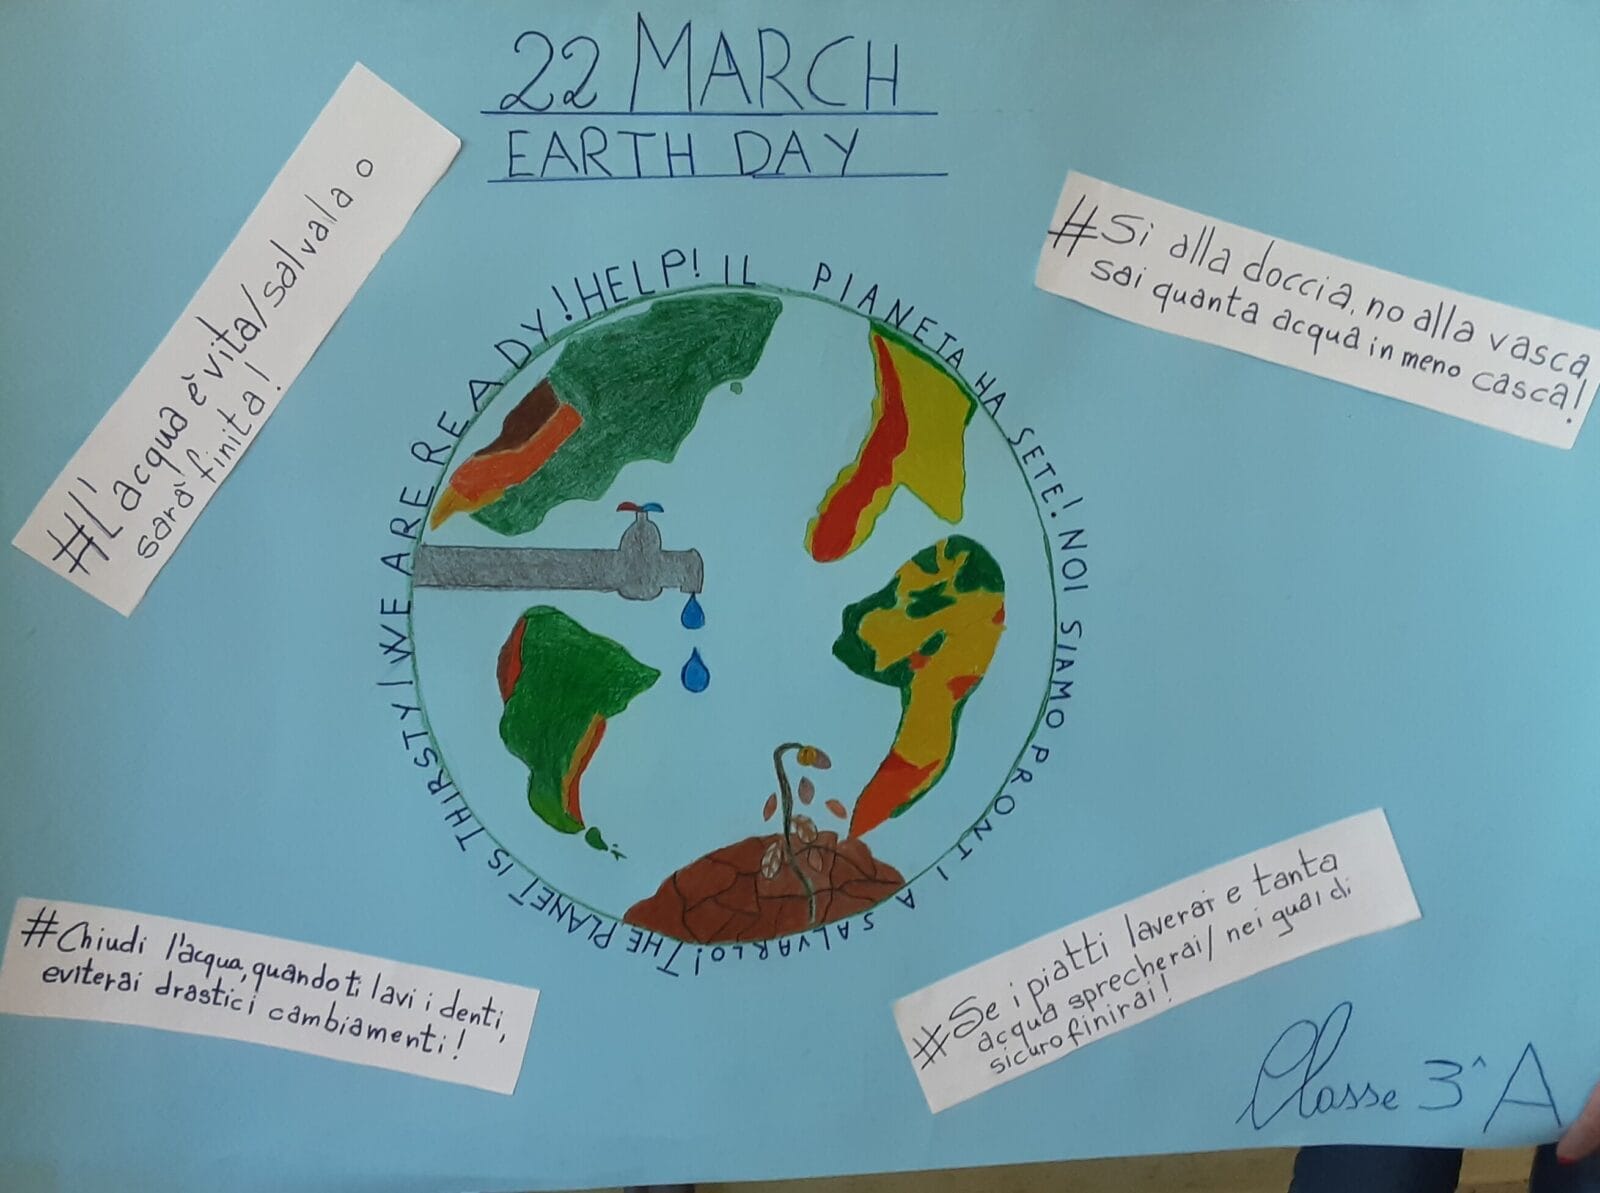 22 MARCH
EARTH DAY
#L'acqua è vita/salvala o
sarà finita!
#Si alla doccia, no alla vasca
sai quanta acqua in meno casca!
HELP! IL PIANETA HA SETE! NOI SIAMO PRONTI A SALVARLO! THE PLANET IS THIRSTY/WE ARE READY!
#Chiudi l'acqua, quando ti lavi i denti,
eviterai drastici cambiamenti!
#Se i piatti laverai e tanta
acqua sprecherai/ nei guai di
sicuro finirai!
Classe 3^A